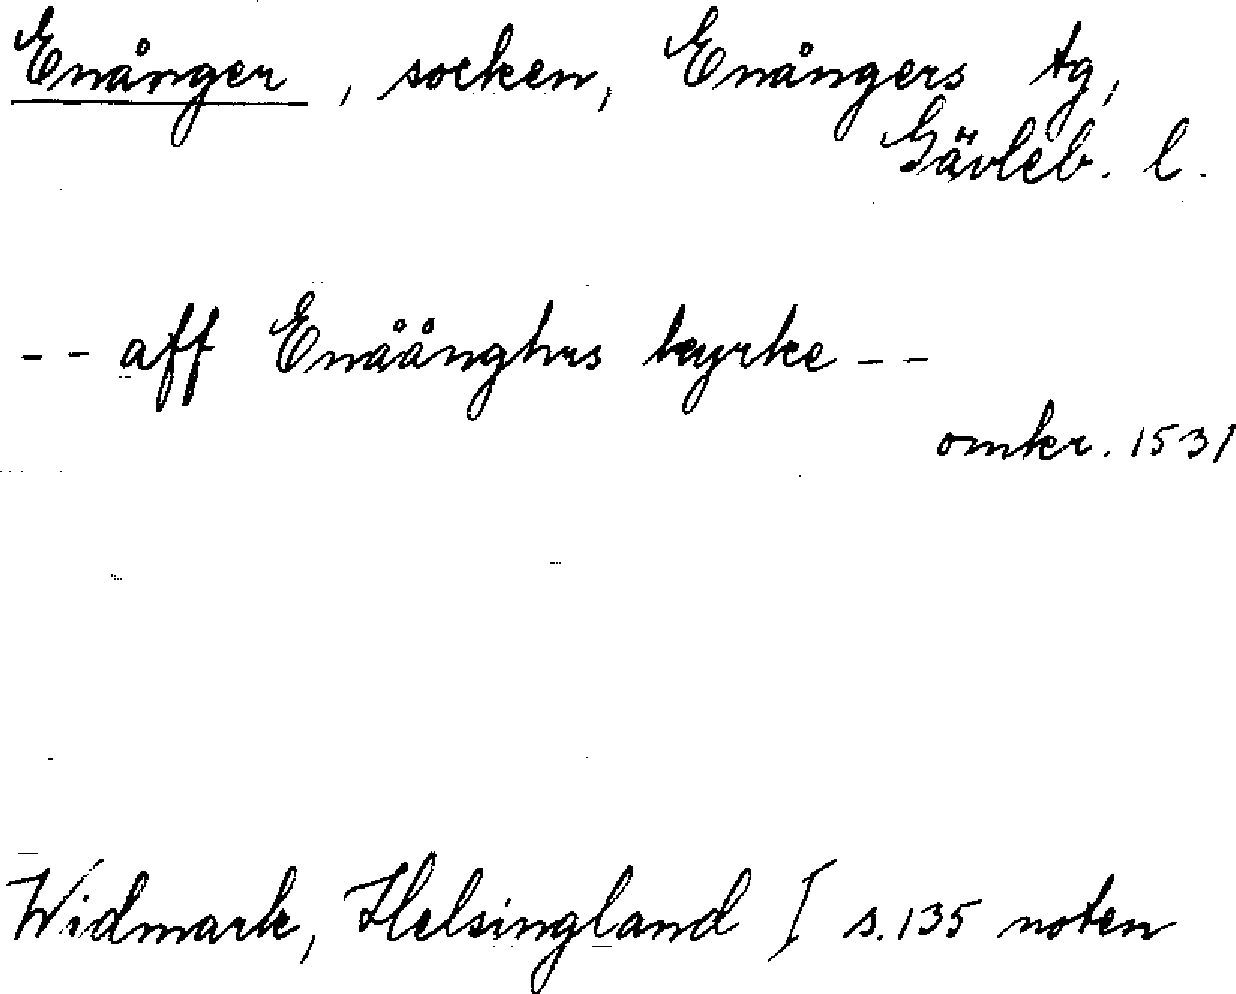 Enånger, socken, Enångers tg,
Gävleb. l.
-- aff Enåånghrs kyrke --
omkr. 1531
Widmark, Helsingland I s. 135 noten